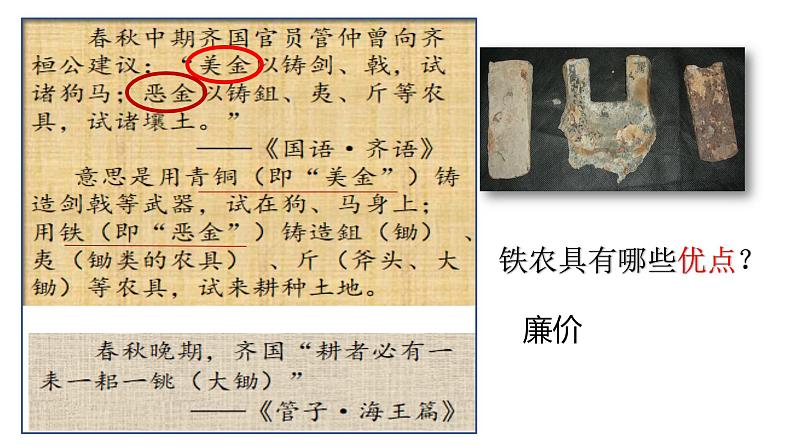 春秋中期齐国官员管仲曾向齐
桓公建议：“美金以铸剑、戟，试
诸狗马；恶金以铸鉏、夷、斤等农
具，试诸壤土。”
——《国语·齐语》
意思是用青铜（即“美金”）铸
造剑戟等武器，试在狗、马身上；
用铁（即“恶金”）铸造鉏（锄）、
夷（锄类的农具）、斤（斧头、大
锄）等农具，试来耕种土地。
春秋晚期，齐国“耕者必有一
耒一耜一铫（大锄）”
——《管子·海王篇》
铁农具有哪些优点？
廉价